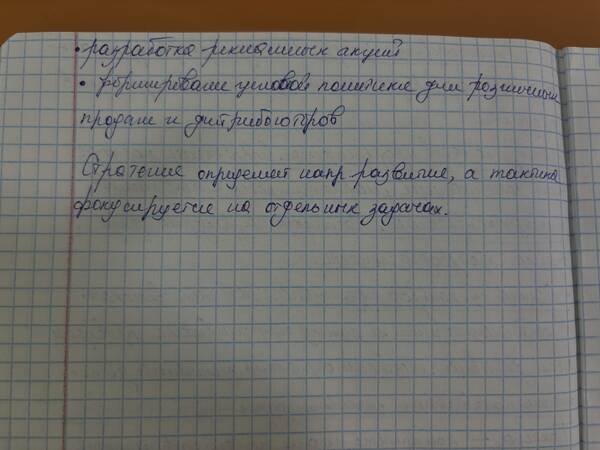 • разработка рекламных акций
• формирование ценовой политики для розничных
продаж и дистрибьюторов
Стратегия определяет напр развития, а тактика
фокусируется на отдельных задачах.